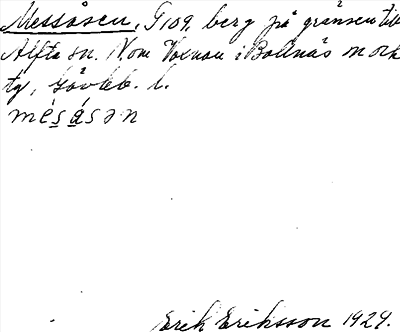 Messåsen, G109. berg på gränsen till
Alfta sn. N om Voxnan i Bollnäs sn och
tg, Gävleb. l.
mésåsən
Erik Eriksson 1929.